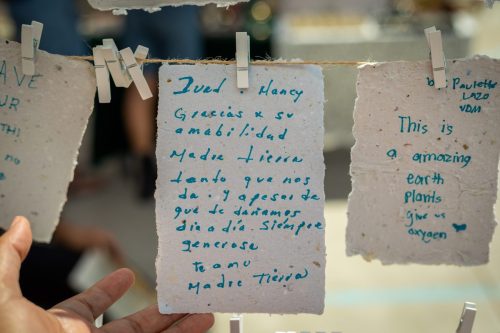 AVE
UR
THI
no
Ived Mancy
Gracias x su
amabilidad
Madre tierra
tanto que nos
da. y apesar de
que te dañamos
dia a dia. Siempre
generosa
te amo
Madre Tierra
by Paulette
LAZO
VDM
This is
a amazing
earth
plants
give us
oxygen